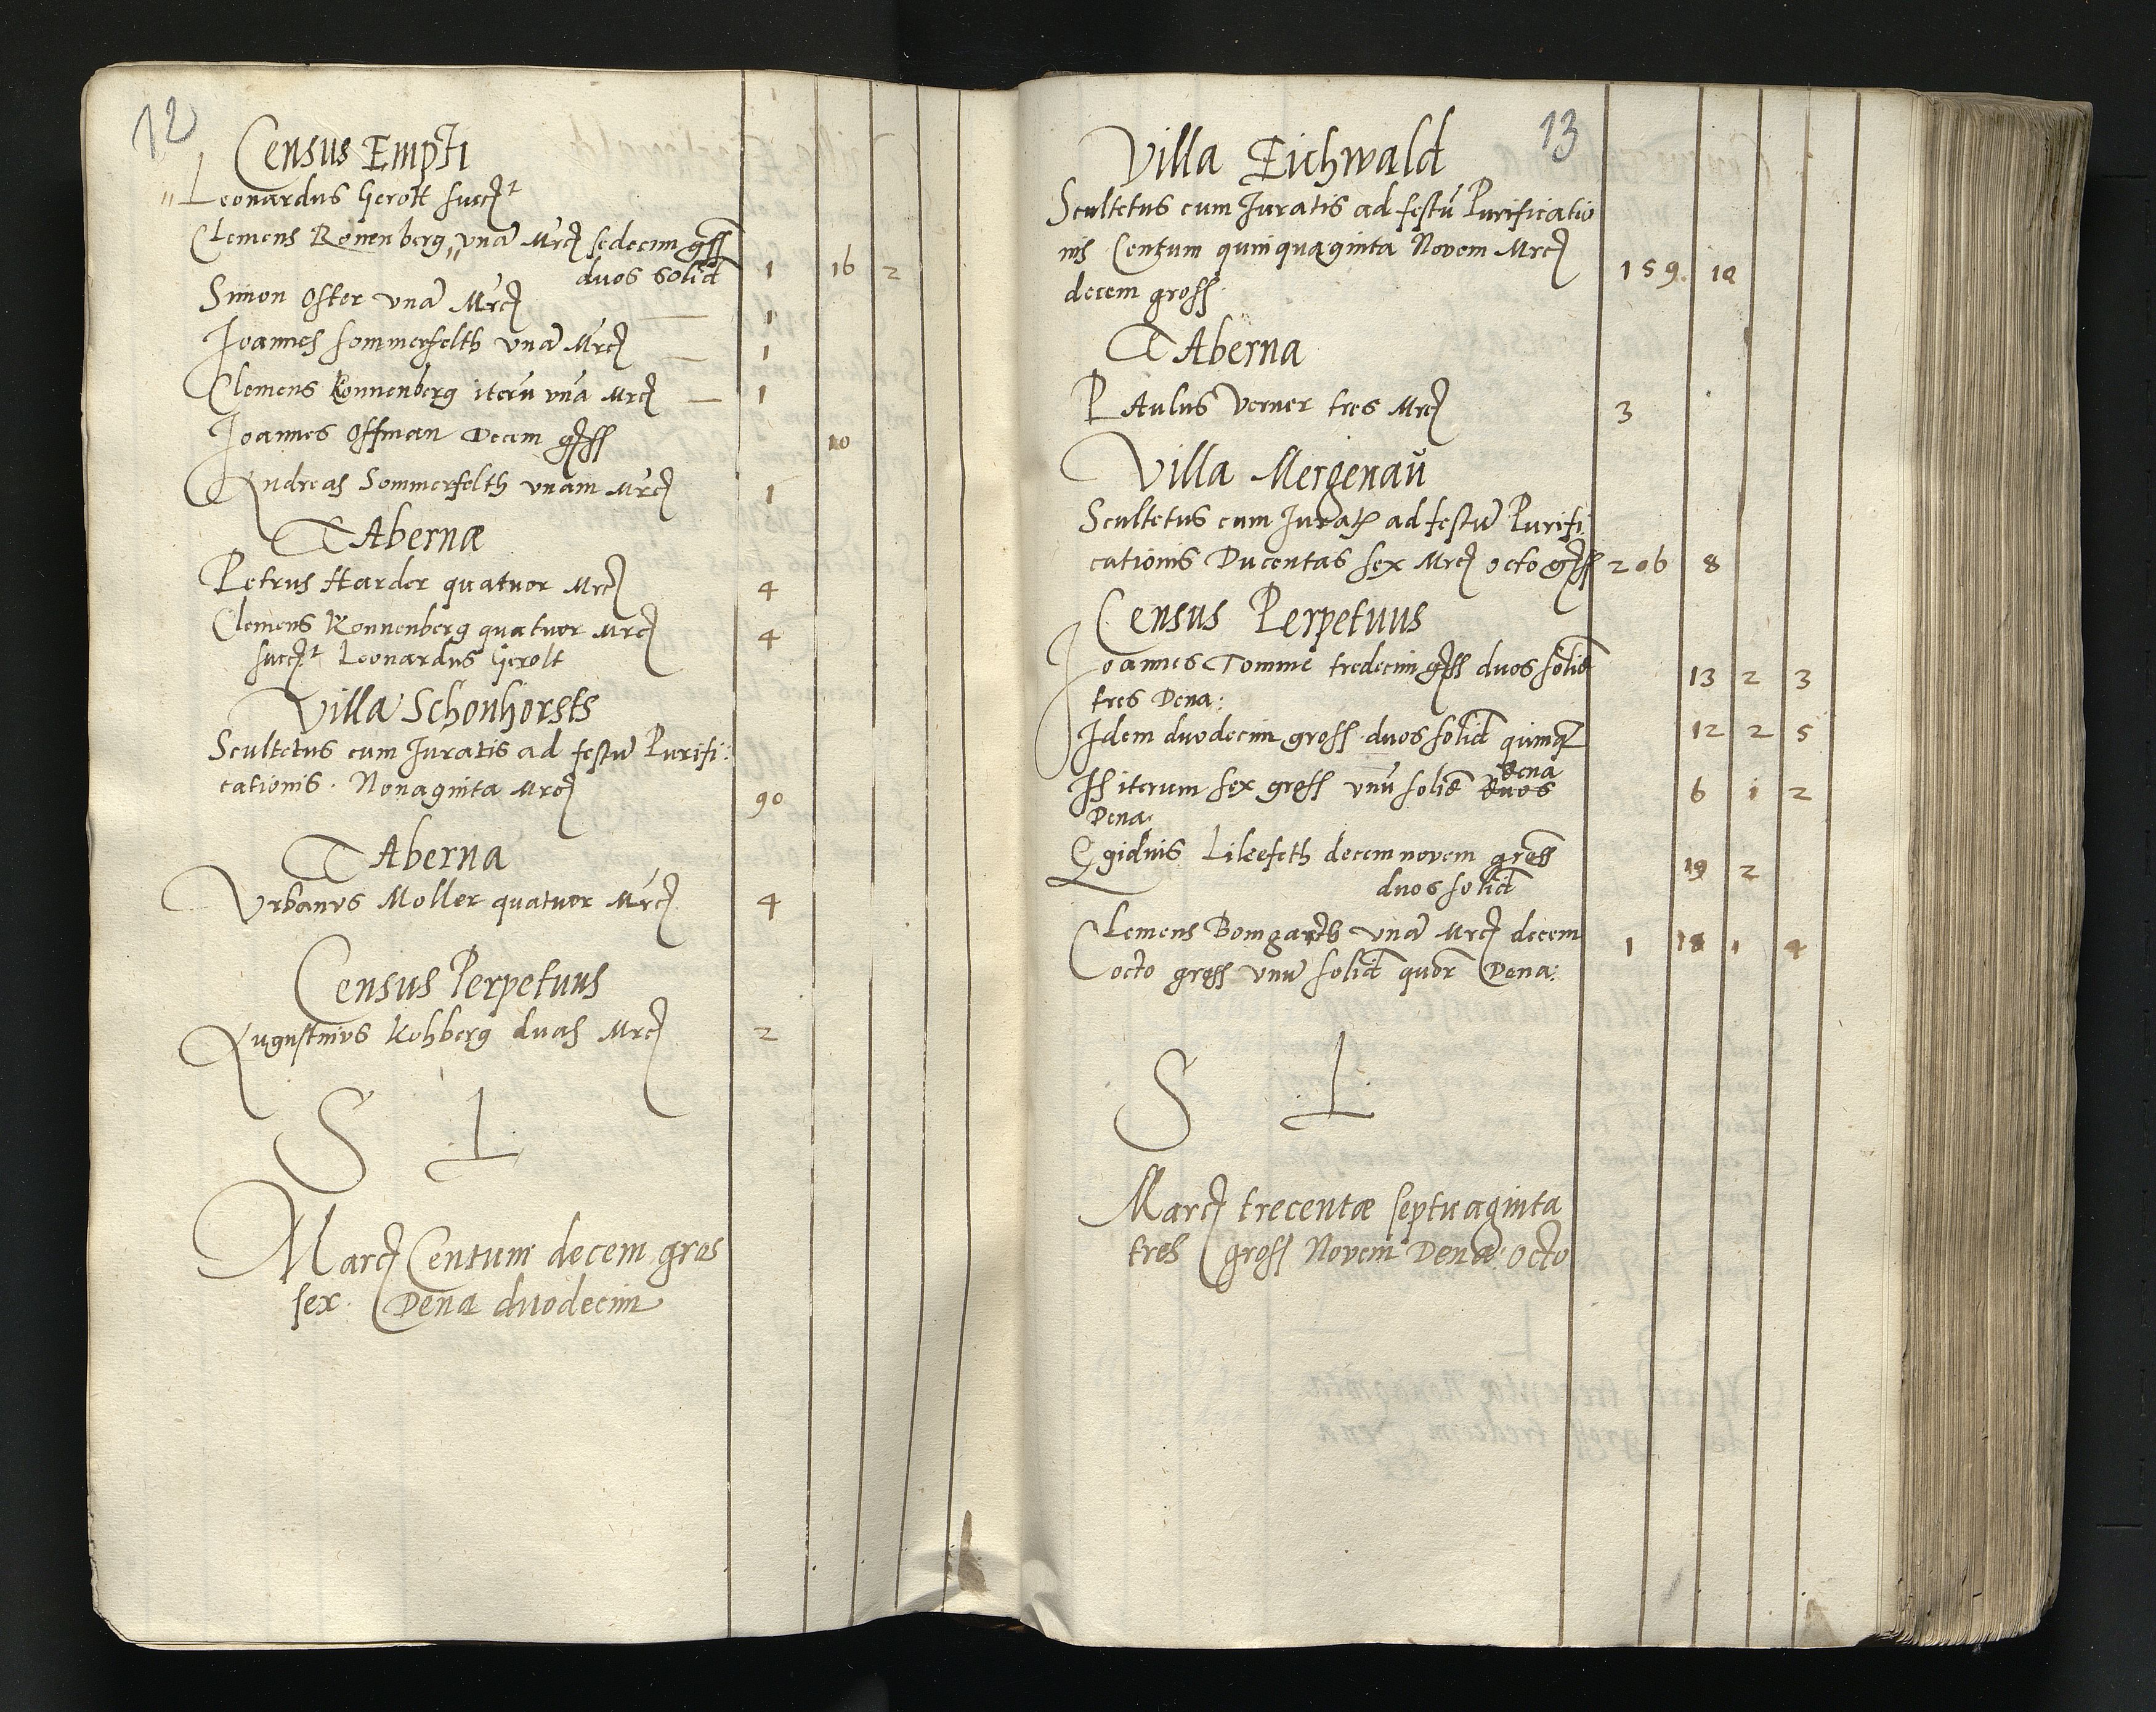 12
Census Empti
Leonardus Gerolt succ
Clemens Ronenberg unā Mrc sedecim gss
duos Solid 1 16 2
Simon Oster unā Mrc 1
Joannes Sommerfelth unā Mrc 1
Clemens Ronnenberg iterū unā Mrc 1
Joannes Offman Decem gss 10
Andreas Sommerfelth unam Mrc 1
TAbernæ
Petrus Harder quatuor Mrc 4
Clemens Ronnenberg quatuor Mrc 4
succ Leonardus Gerolt
Villa Schonhorsts
Scultetus cum Juratis ad festū Purifi:
cationis. Nonaginta Mrc 90
TAberna
Urbanus Moller quatuor Mrc 4
Census Perpetuus
Augustinus Kohberg duas Mrc 2
S L
Marc Centum decem gros
sex. Dena duodecim
13
Villa Eichwald
Scultetus cum Juratis ad festū Purificatio
nis Centum quinquaginta Novem Mrc 159. 10
decem gross
TAberna
PAulus Verner tres Mrc 3
Villa Mergenaŭ
Scultetus cum Jurat ad festū Purifi
cationis Ducentas sex Mrc octo gss 206 8
Census Perpetuus
Joannes Tomme tredecim gss duos solid 13 2 3
tres Dena:
Idem duodecim gross duos solid quinq 12 2 5
Dena
Is iterum sex gross unū solid duos 6 1 2
Dena
Egidius Likefeth decem novem gross 19 2
duos solid
Clemens Bomgarth unā Mrc decem 1 18 1 4
octo gross unū solid quor Dena:
S L
Marc trecentæ septuaginta
tres gross Novem Dena: octo